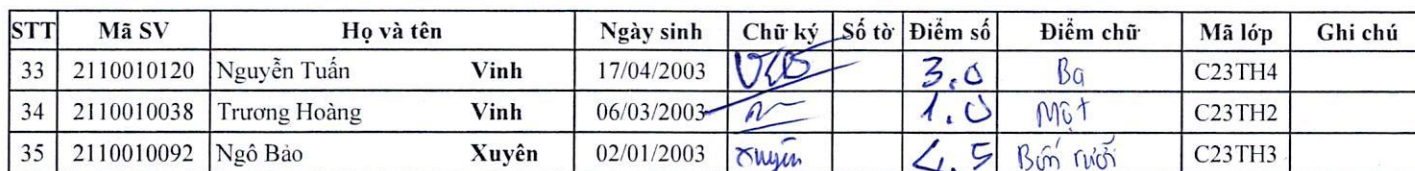 STT Mã SV Họ và tên Ngày sinh Chữ ký Số tờ Điểm số Điểm chữ Mã lớp Ghi chú
33 2110010120 Nguyễn Tuấn Vinh 17/04/2003 3.0 Ba C23TH4
34 2110010038 Trương Hoàng Vinh 06/03/2003 1.0 Một C23TH2
35 2110010092 Ngô Bảo Xuyên 02/01/2003 xuyên 4.5 Bốn rưỡi C23TH3